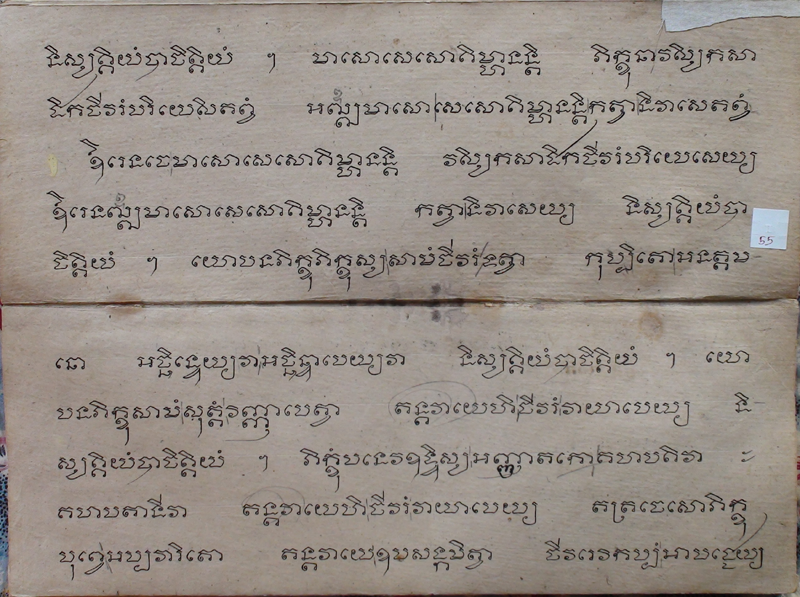 និស្សគ្គិយំបាចិត្តិយំ ៗ មាសោសេសោគិម្ហានន្តិ ភិក្ខុនាវស្សិកសា
ដិកចីវរំបរិយេសិតព្វំ អឌ្ឍមាសោសេសោគិម្ហានន្តិកត្វានិវាសេតព្វំ
ឱរេនចេមាសោសេសោគិម្ហានន្តិ វស្សិកសាដិកចីវរំបរិយេសេយ្យ
ឱរេនឌ្ឍមាសោសេសោគិម្ហានន្តិ កត្វានិវាសេយ្យ និស្សគ្គិយំបា
ចិត្តិយំ ៗ យោបនភិក្ខុភិក្ខុស្សសាមំចីវរំទត្វា កុប្បិតោអនត្តម
នោ អច្ឆិន្ទេយ្យវាអច្ឆិន្ទាបេយ្យវា និស្សគ្គិយំបាចិត្តិយំ ៗ យោ
បនភិក្ខុសាមំសុត្តំវិញ្ញាបេត្វា តន្តវាយេហិចីវរំវាយាបេយ្យ និ
ស្សគ្គិយំបាចិត្តិយំ ៗ ភិក្ខុំបនេវឧទ្ទិស្សអញ្ញាតកោគហបតិវា
គហបតានីវា តន្តវាយេហិចីវរំវាយាបេយ្យ តត្រចេសោភិក្ខុ
បុព្វេអប្បវារិតោ តន្តវាយេឧបសង្កមិត្វា ចីវរេវិកប្បំអាបជ្ជេយ្យ
55